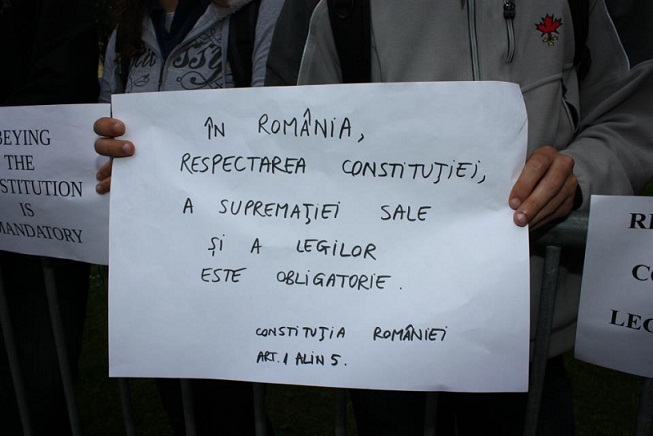 BEYING
THE
STITUTION
IS
MANDATORY
ÎN ROMÂNIA,
RESPECTAREA CONSTITUȚIEI,
A SUPREMAȚIEI SALE
ȘI A LEGILOR
ESTE OBLIGATORIE.
CONSTITUȚIA ROMÂNIEI
ART. 1 ALIN 5.
RE
CO
LEG